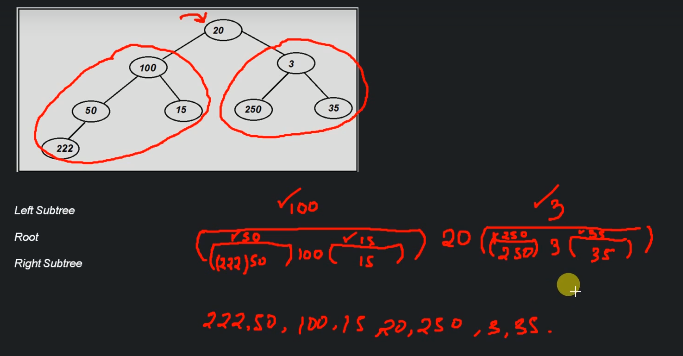 20
100
3
50
15
250
35
222
Left Subtree
Root
Right Subtree
100
3
50
15
250
35
((222)50) 100 (15) 20 ((250) 3 (35))
222,50, 100,15 ,20,250 ,3,35.